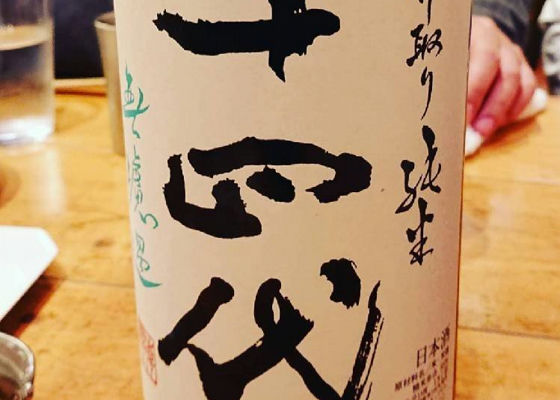 取り純米
十四代
無濾過
日本酒